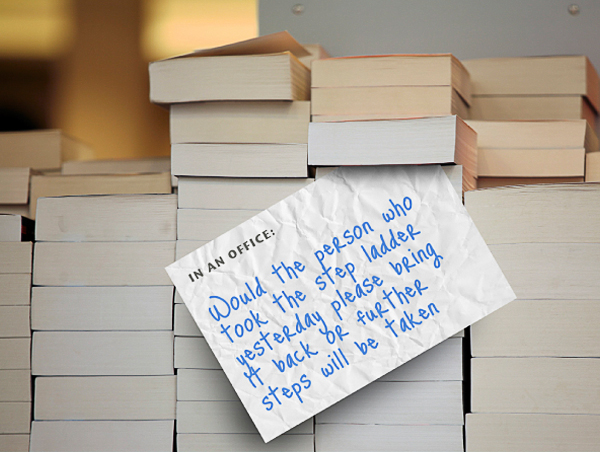 IN AN OFFICE:
Would the person who
took the step ladder
yesterday please bring
it back or further
steps will be taken